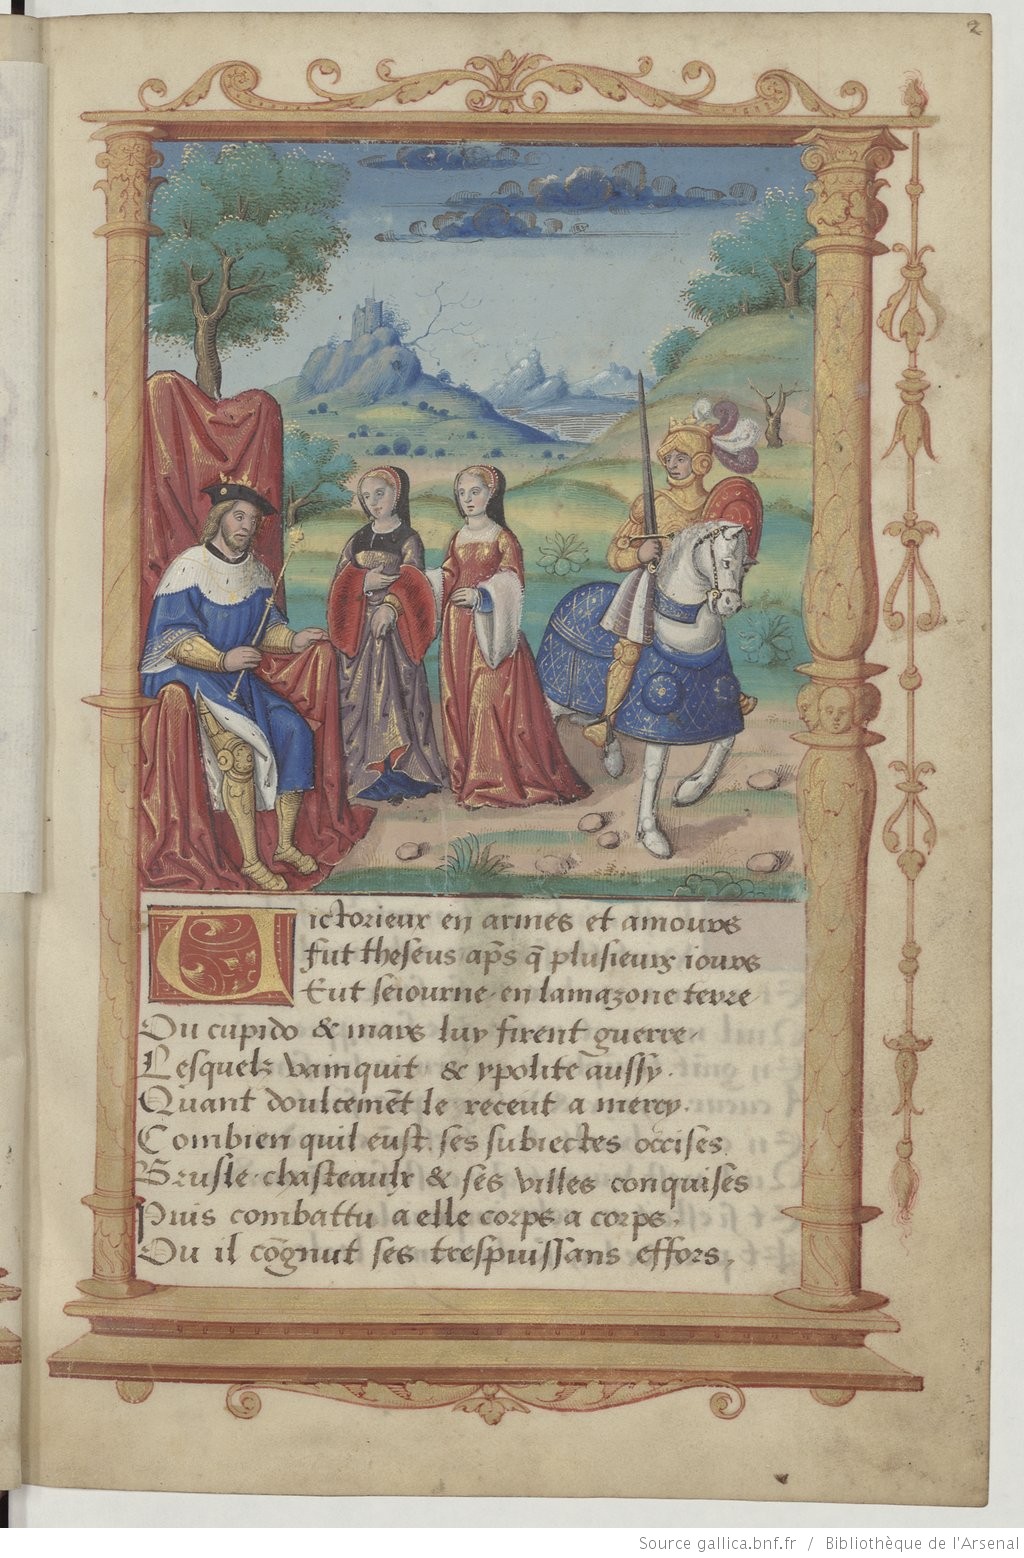 2
Victorieux en armes et amours
Fut theseus ap̃s q̃ plusieurs iours
Eut seiourne en lamazone terre
Ou cupido & mars luy firent guerre.
Lesquelz vainquit & ypolite aussy.
Quant doulcemẽt le receut a mercy.
Combien quil eust ses subiectes occises
Brusle chasteaulx & ses villes conquises
Puis combattu a elle corps a corps.
Ou il cõgnut ses trespuissans effors.
Source gallica.bnf.fr / Bibliothèque de l'Arsenal